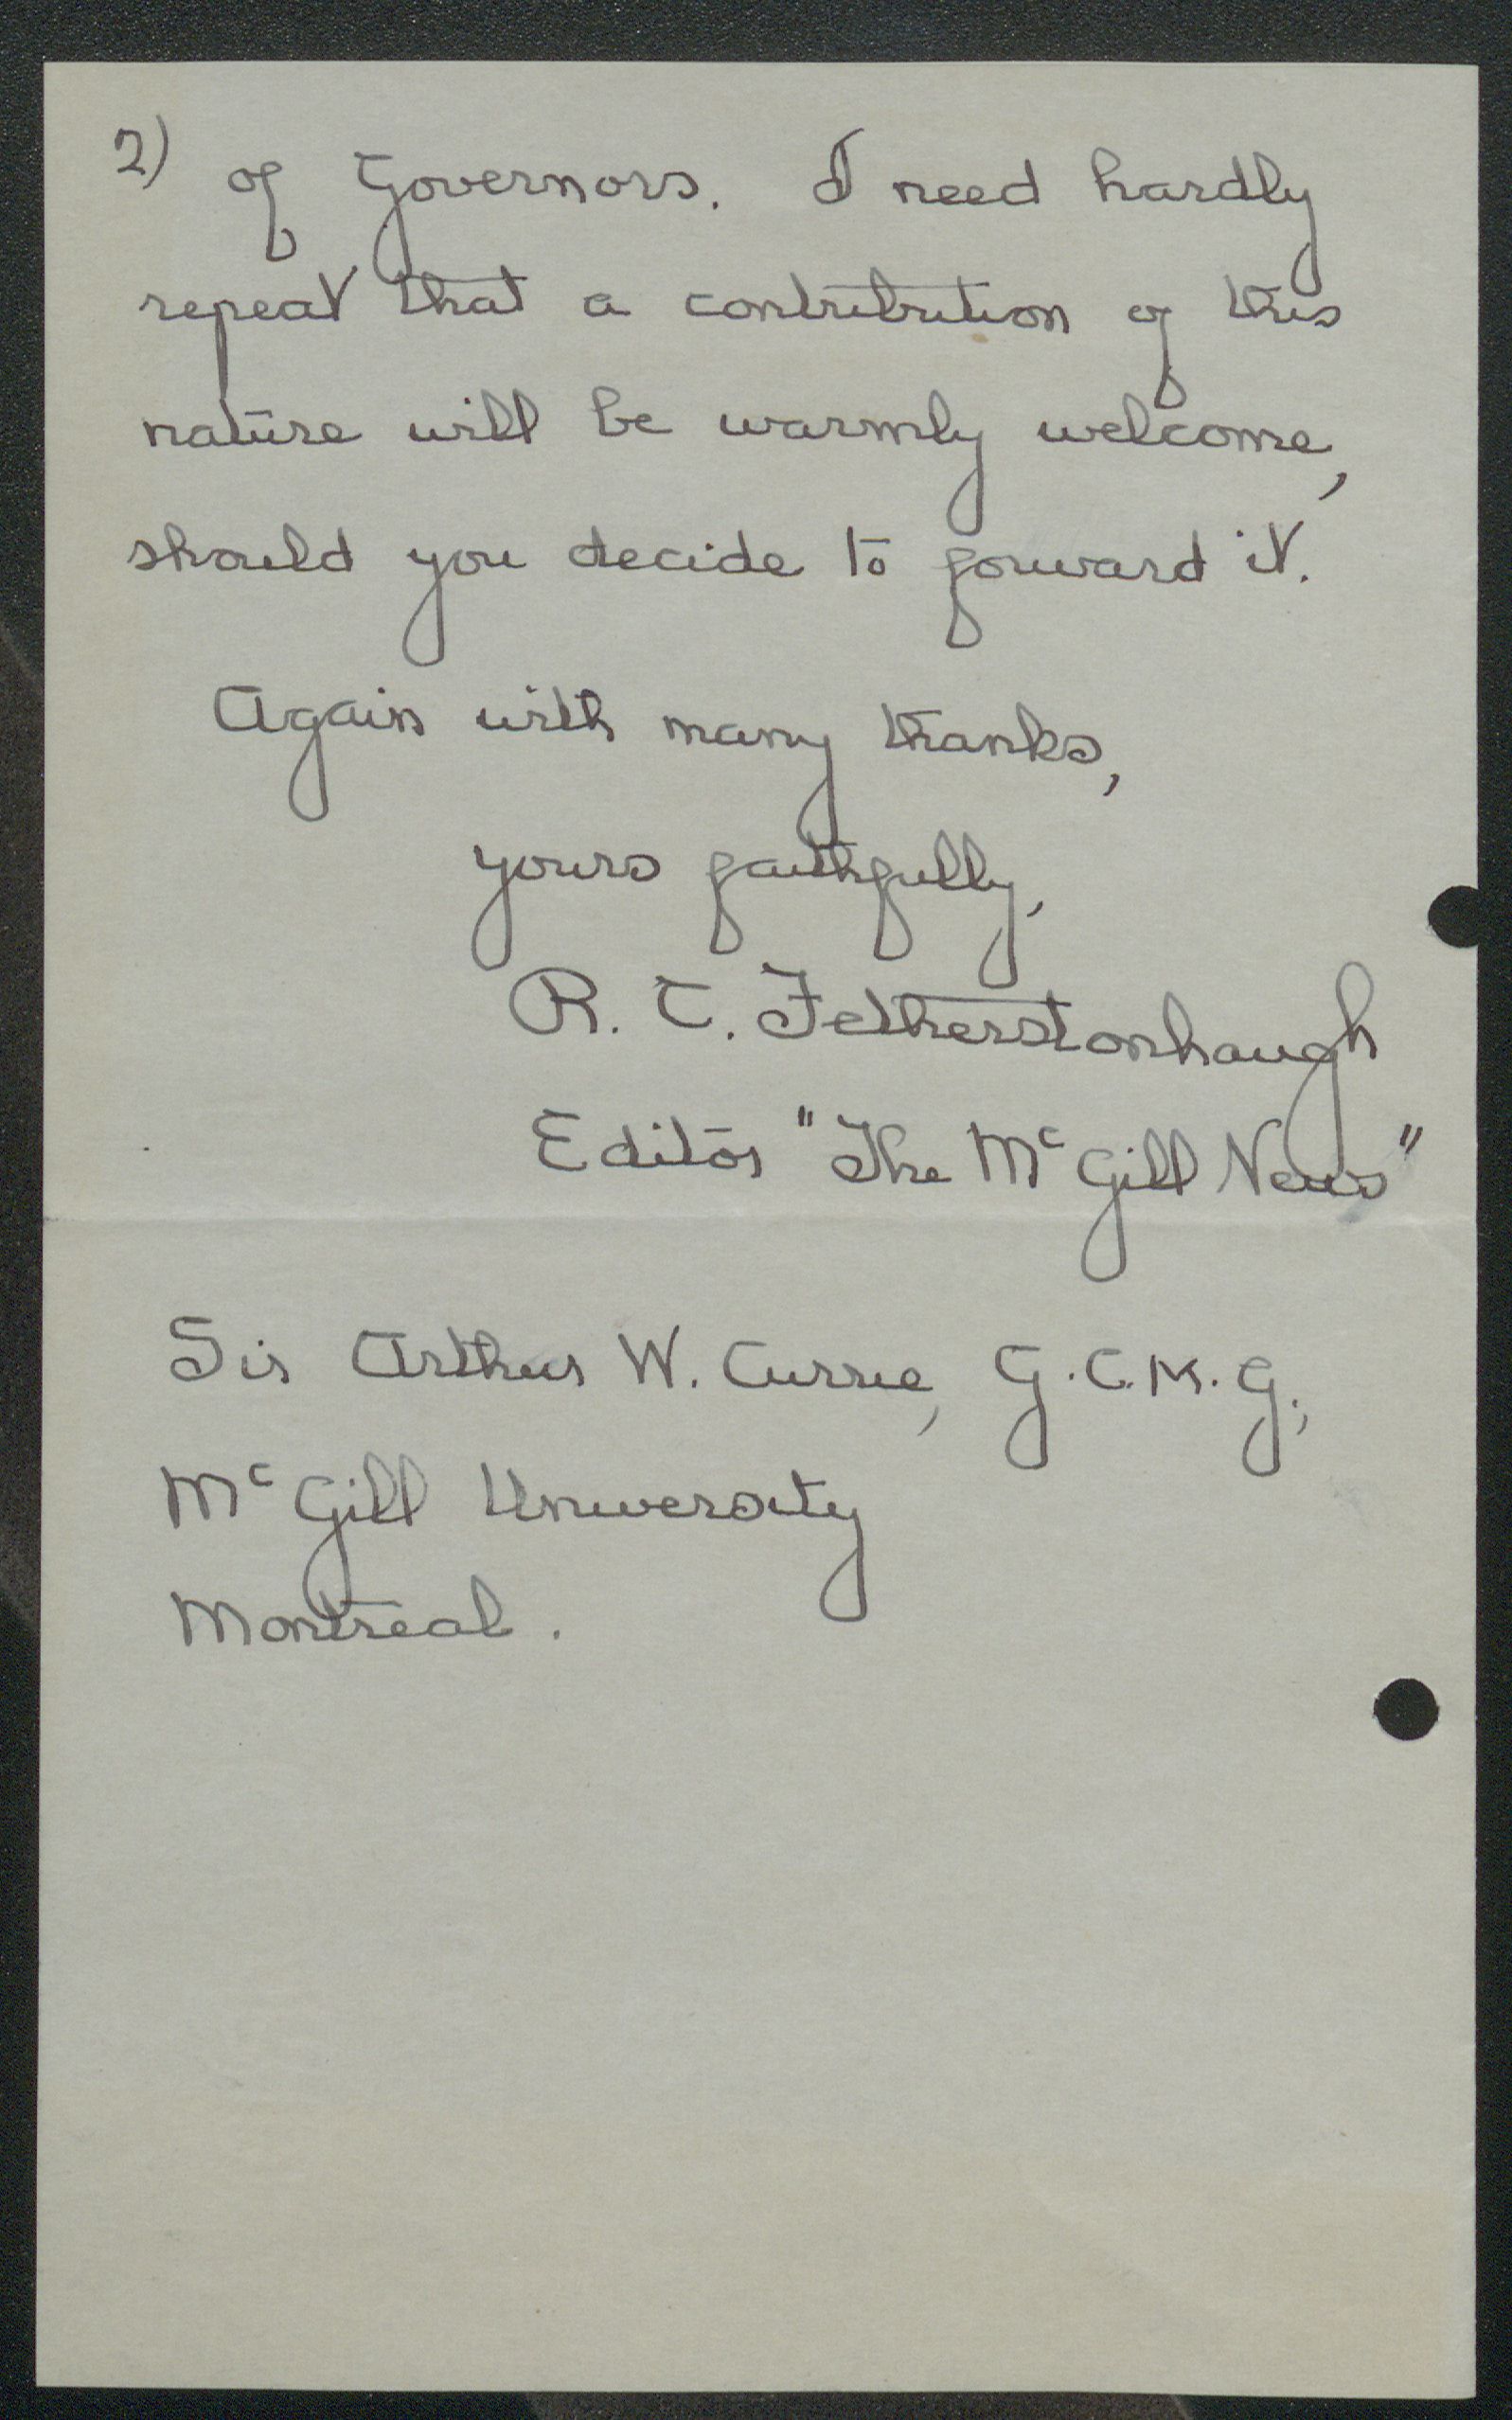 2) of Governors. I need hardly
repeat that a contribution of this
nature will be warmly welcome,
should you decide to forward it.
Again with many thanks,
yours faithfully,
R. C. Fetherstonhaugh
Editor "The McGill News"
Sir Arthur W. Currie, G.C.M.G.,
McGill University
Montreal.